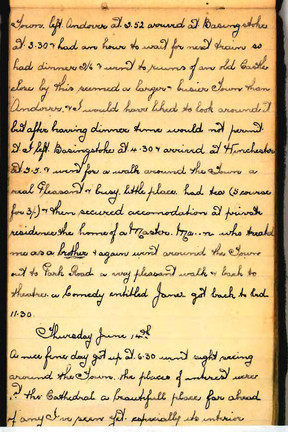 Town, left Andover at 2.52 arrived at Basingstoke
at 3.30 & had an hour to wait for next train so
had dinner 2/6 & went to ruins of an old Castle
close by this seemed a larger & busier Town than
Andover, & I would have liked to look around it
but after having dinner time would not permit
as I left Basingstoke at 4.30 & arrived at Winchester
at 5.5. & went for a walk around the Town a
real Pleasant & busy little place, had tea (3 course
for 3/-) & then secured accomodation at private
residence the home of a Mastr. who treated
me as a brother & again went around the Town
out to Park Road a very pleasant walk & back to
theatre, a Comedy entitled Jane got back to bed
11.30.
Thursday June 14th
A nice fine day got up at 6.30 went sight seeing
around the Town, the places of interest were
the Cathedral a beautiful place far ahead
of any I've seen yet. especially its interior